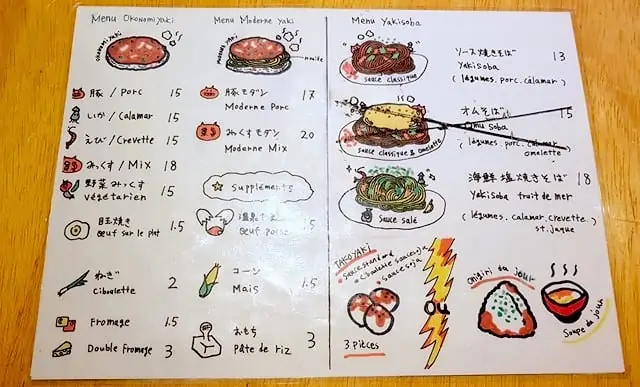 Menu Okonomiyaki
okonomiyaki
豚 / Porc 15
いか / Calamar 15
えび / Crevette 15
みっくす / Mix 18
野菜みっくす 15
végétarien
目玉焼き 1.5
Œuf sur le plat
ねぎ 2
Ciboulette
Fromage 1.5
Double Fromage 3
Menu Moderne yaki
moderne yaki
noodle
豚モダン 17
Moderne Porc
みっくすモダン 20
Moderne Mix
Suppléments
Œuf
コーン 1.5
Mais
おもち 3
Pâte de riz
Menu Yakisoba
sauce classique
ソース焼きそば 13
Yakisoba
(légumes, porc, calamar)
sauce classique & omelette
オムそば 15
Omu Soba
(légumes, porc, calamar
omelette)
Sauce salé
海鮮塩焼きそば 18
Yakisoba fruit de mer
(légumes, calamar, crevette
st. jaque)
TAKOYAKI
• Sauce standard
• Ciboulette sauce soja
• sauce soja
3 pièces
OU
Onigiri du jour
Soupe du jour